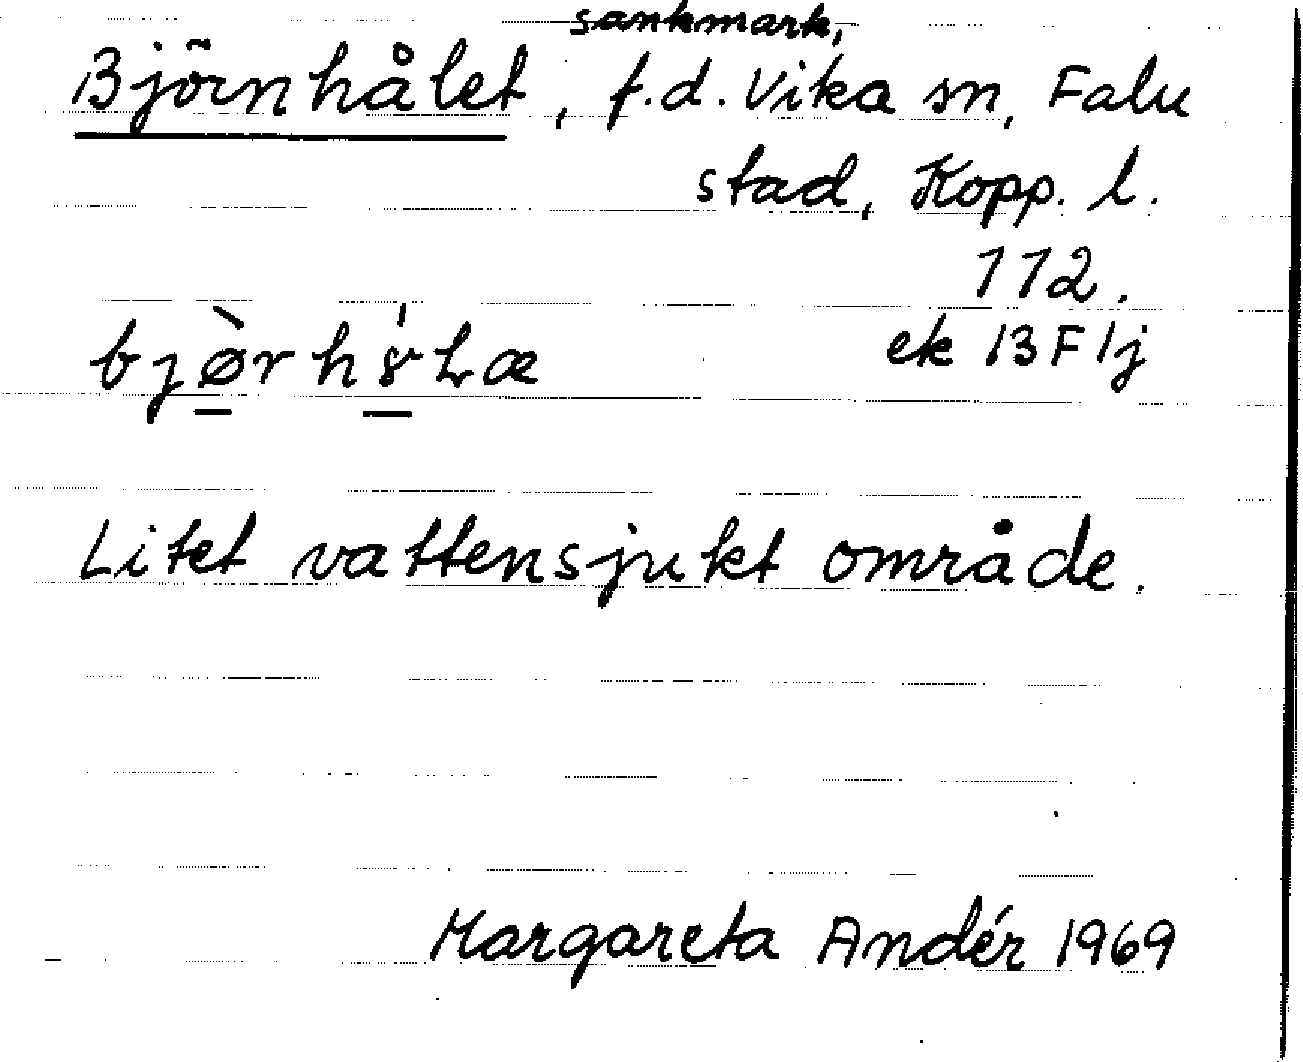 sankmark,
Björnhålet, f.d. Vika sn, Falu
stad, Kopp. l.
112.
ek 13 F 1j
Litet vattensjukt område.
Margareta Andér 1969